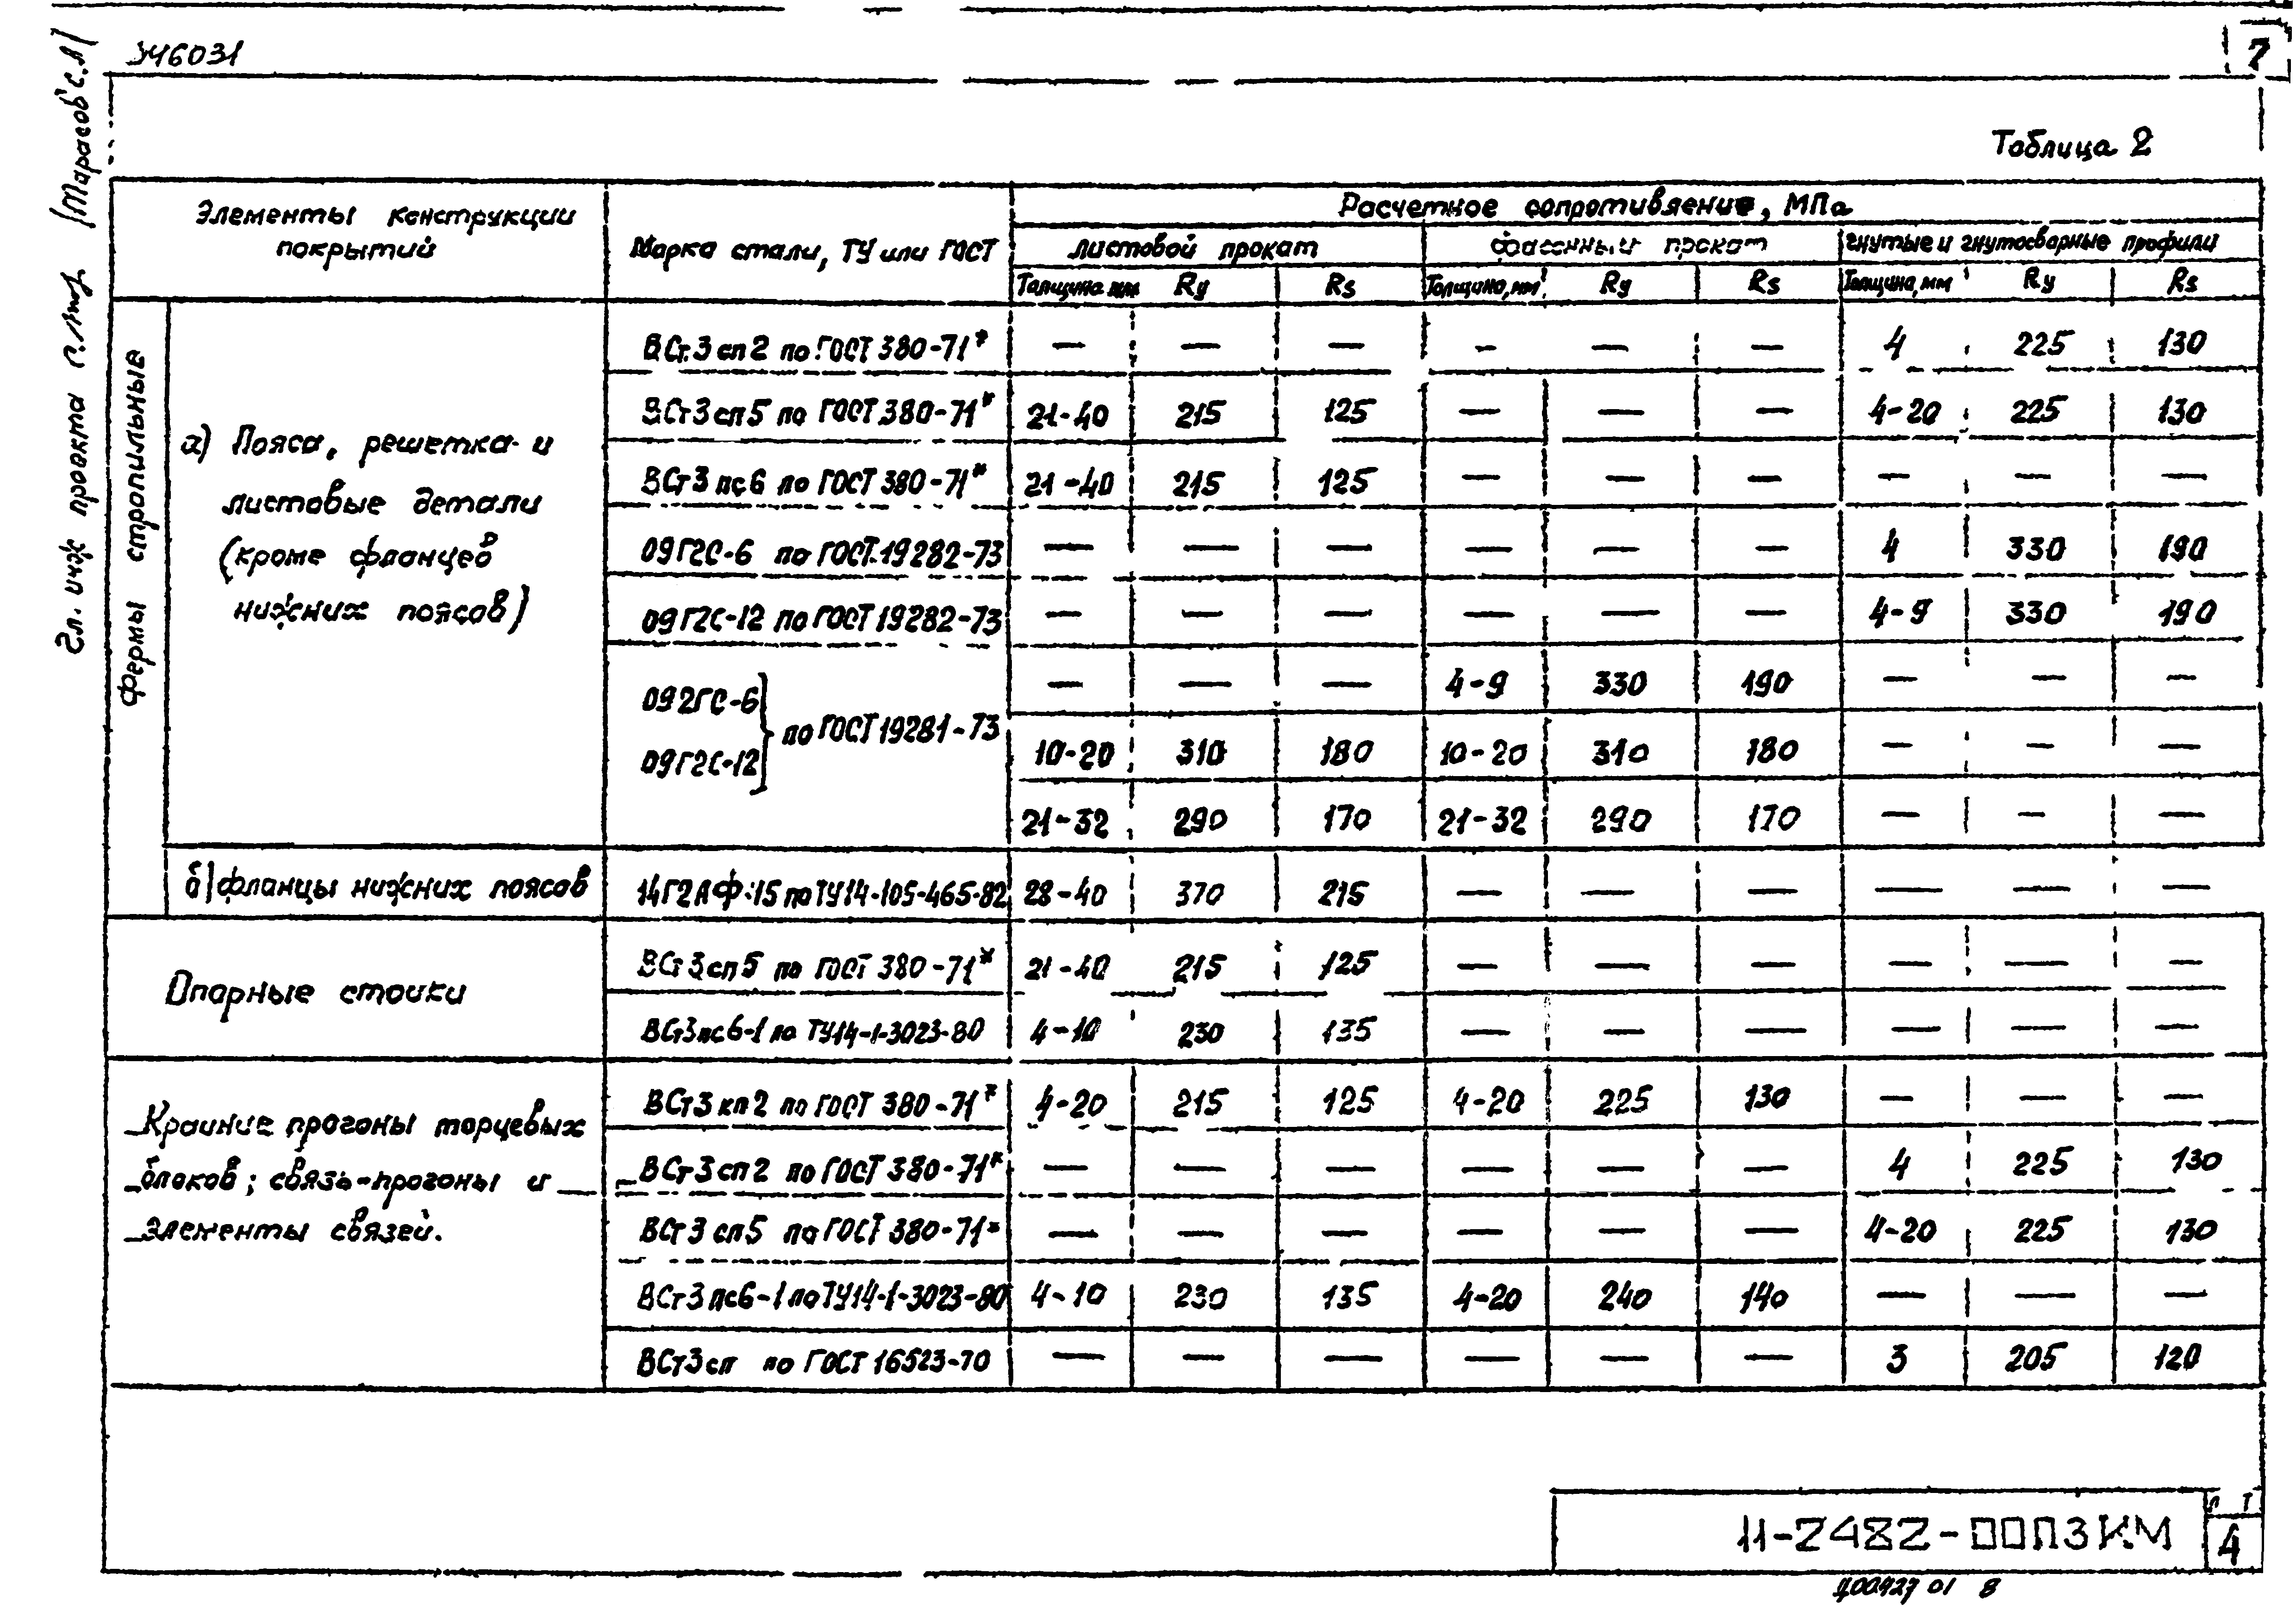 7
Таблица 2
Элементы конструкции покрытий | Марка стали, ТУ или ГОСТ | Расчетное сопротивление, МПа
листовой прокат | фасонный прокат | гнутые и гнутосварные профили
Толщина мм | Ry | Rs | Толщина, мм | Ry | Rs | Толщина, мм | Ry | Rs
Фермы стропильные
а) Пояса, решетка и
листовые детали
(кроме фланцев
нижних поясов)
ВСт.3 сп 2 по ГОСТ 380-71* | — | — | — | — | — | — | 4 | 225 | 130
ВСт3 сп5 по ГОСТ 380-71* | 21-40 | 215 | 125 | — | — | — | 4-20 | 225 | 130
ВСт3 пс6 по ГОСТ 380-71* | 21-40 | 215 | 125 | — | — | — | — | — | —
09Г2С-6 по ГОСТ 19282-73 | — | — | — | — | — | — | 4 | 330 | 190
09Г2С-12 по ГОСТ 19282-73 | — | — | — | — | — | — | 4-9 | 330 | 190
092ГС-6
09Г2С-12
} по ГОСТ 19281-73
— | — | — | 4-9 | 330 | 190 | — | — | —
10-20 | 310 | 180 | 10-20 | 310 | 180 | — | — | —
21-32 | 290 | 170 | 21-32 | 290 | 170 | — | — | —
б) фланцы нижних поясов | 14Г2АФ-15 по ТУ14-105-465-82 | 28-40 | 370 | 215 | — | — | — | — | — | —
Опорные стойки
ВСт3сп5 по ГОСТ 380-71* | 21-40 | 215 | 125 | — | — | — | — | — | —
ВСт3пс6-1 по ТУ14-1-3023-80 | 4-10 | 230 | 135 | — | — | — | — | — | —
Крайние прогоны торцевых
блоков; связь-прогоны и
элементы связей.
ВСт3 кп2 по ГОСТ 380-71* | 4-20 | 215 | 125 | 4-20 | 225 | 130 | — | — | —
ВСт3 сп2 по ГОСТ 380-71* | — | — | — | — | — | — | 4 | 225 | 130
ВСт3 сп5 по ГОСТ 380-71* | — | — | — | — | — | — | 4-20 | 225 | 130
ВСт3 пс6-1 по ТУ14-1-3023-80 | 4-10 | 230 | 135 | 4-20 | 240 | 140 | — | — | —
ВСт3сп по ГОСТ 16523-70 | — | — | — | — | — | — | 3 | 205 | 120
Гл. инж проекта
11-2482-00ПЗ КМ
4
01 8